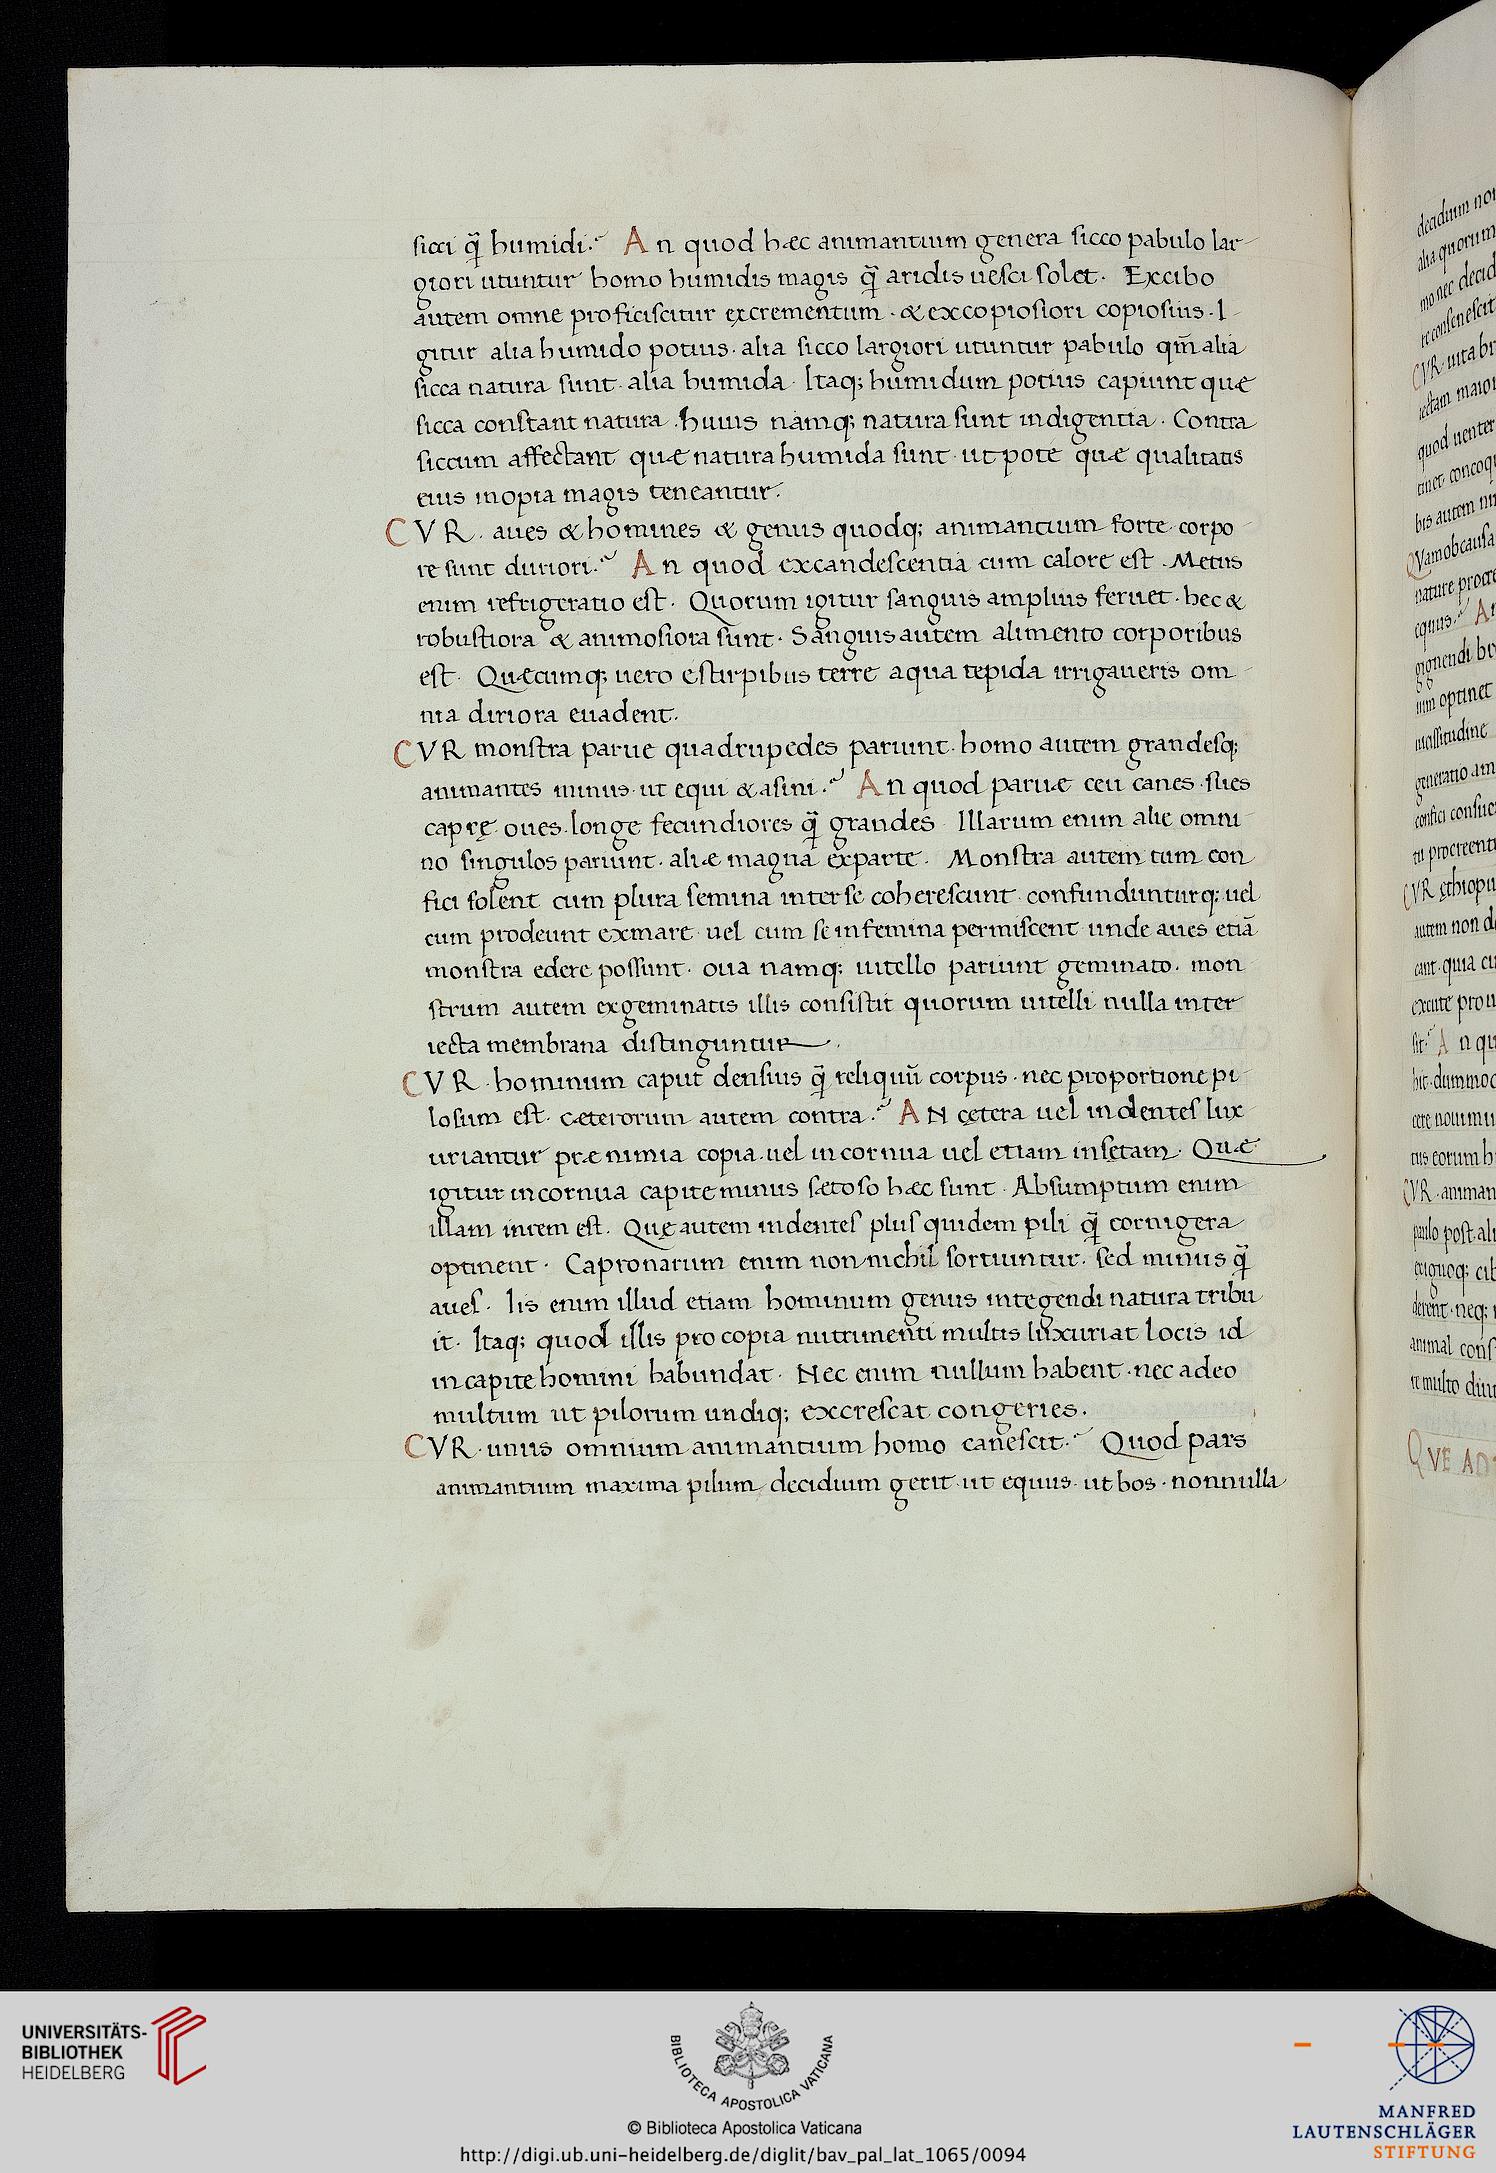 sicci q̃ humidi? An quod hæc animantium genera sicco pabulo lar
giori utuntur homo humidis magis q̃ aridis uesci solet. Excibo
autem omne proficiscitur excrementum · & ex copiosiori copiosius · I
gitur alia humido potius · alia sicco largiori utuntur pabulo qm̃ alia
sicca natura sunt · alia humida · Itaq; humidum potius capiunt quæ
sicca constant natura · huius namq; natura sunt indigentia · Contra
siccum affectant quæ natura humida sunt · ut pote quæ qualitatis
eius inopia magis teneantur.
CVR · aues & homines & genus quodq; animantium forte · corpo
re sunt duriori? An quod excandescentia cum calore est · Metus
enim refrigeratio est · Quorum igitur sanguis amplius feruet · hec &
robustiora & animosiora sunt · Sanguis autem alimento corporibus
est · Quæcumq; uero e stirpibus terre aqua tepida irrigaueris om
nia diriora euadent.
CVR monstra parue quadrupedes pariunt · homo autem grandesq;
animantes minus · ut equi & asini? An quod paruæ ceu canes · sues
capre̜ · oues · longe fecundiores q̃ grandes · Illarum enim alie omni
no singulos pariunt · aliæ magna exparte · Monstra autem tum con
fici solent cum plura semina inter se coherescunt · confundunturq; uel
cum prodeunt exmare · uel cum se in femina permiscent · unde aues etiã
monstra edere possunt · oua namq; uitello pariunt geminato · mon
strum autem exgeminatis illis consistit quorum uitelli nulla inter
iecta membrana distinguntur.
CVR · hominum caput densius q̃ reliquũ corpus · nec proportione pi
losum est · cæterorum autem contra? AN ce̜tera uel in dentes lux
uriantur præ nimia copia · uel in cornua uel etiam in se̜tam · Quæ
igitur in cornua capite minus sætoso hæc sunt · Absumptum enim
illam in rem est · Que̜ autem in dentes plus quidem pili q̃ cornigera
optinent · Capronarum enim non nichil sortiuntur · sed minus q̃
aues · Iis enim illud etiam hominum genus integendi natura tribu
it · Itaq; quod illis pro copia nutrimenti multis luxuriat locis id
in capite homini habundat · Nec enim nullum habent · nec adeo
multum ut pilorum undiq; excrescat congeries.
CVR · unus omnium animantium homo canescit? Quod pars
animantium maxima pilum decidium gerit · ut equus · ut bos · nonnulla
UNIVERSITÄTS-
BIBLIOTHEK
HEIDELBERG
BIBLIOTECA APOSTOLICA VATICANA
© Biblioteca Apostolica Vaticana
http://digi.ub.uni-heidelberg.de/diglit/bav_pal_lat_1065/0094
MANFRED
LAUTENSCHLÄGER
STIFTUNG